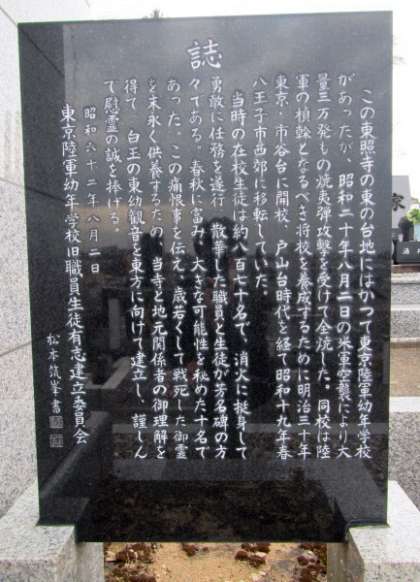 誌
この東照寺の東の台地にはかつて東京陸軍幼年学校
があったが、昭和二十年八月二日の米軍空襲により大
量三万発もの焼夷弾攻撃を受けて全焼した。同校は陸
軍の楨幹となるべき将校を養成するために明治三十年
東京・市谷台に開校、戸山台時代を経て昭和十九年春
八王子市西郊に移転していた。
当時の在校生徒は約八百七十名で、消火に挺身して
勇敢に任務を遂行 散華した職員と生徒が芳名碑の方
々である。春秋に富み、大きな可能性を秘めた十名で
あった。この痛恨事を伝え、歳若くして戦死した御霊
を末永く供養するため、当寺と地元関係者の御理解を
得て 白王の東幼観音を東方に向けて建立し、謹しん
で慰霊の誠を捧げる。
昭和六十二年八月二日
東京陸軍幼年学校旧職員生徒有志建立委員会
松本筑峯書